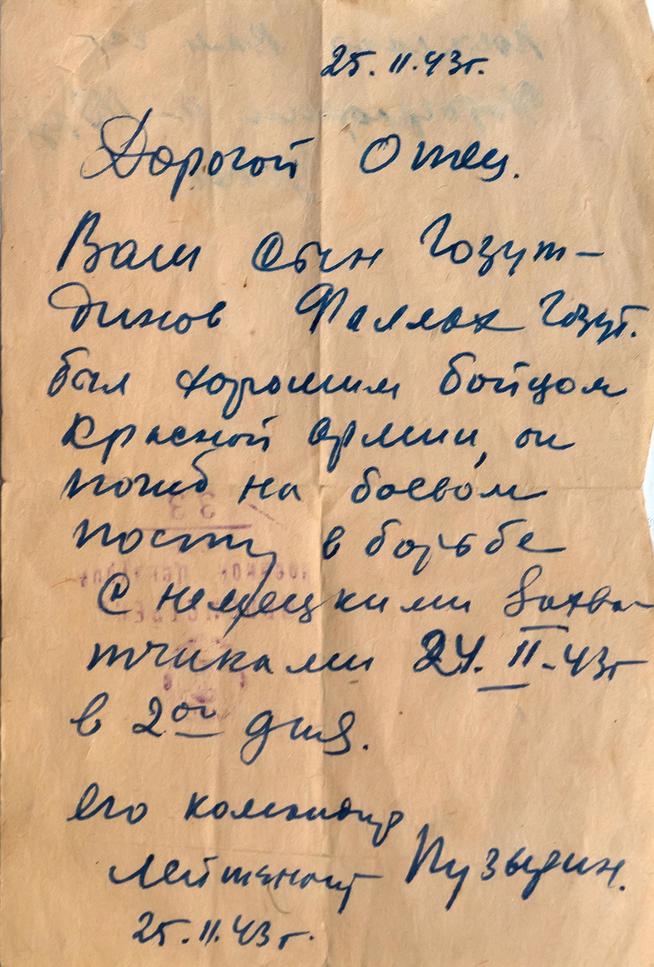 25.II.43г.
Дорогой Отец.
Ваш сын Гозут-
динов Фаллах Гозут.
был хорошим бойцом
Красной Армии, он
погиб на боевом
посту в борьбе
с немецкими захва-
тчиками 24.II-43г
в 2оо дня.
его командир
лейтенант Пузырин.
25.II.43г.